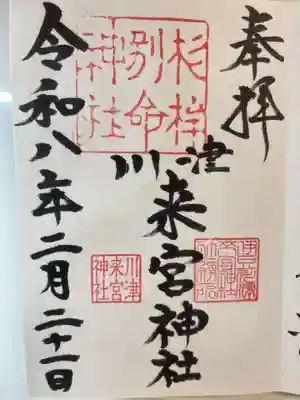 奉拝
杉桙別命神社
川津
来宮神社
川津来宮神社
令和八年二月二十一日